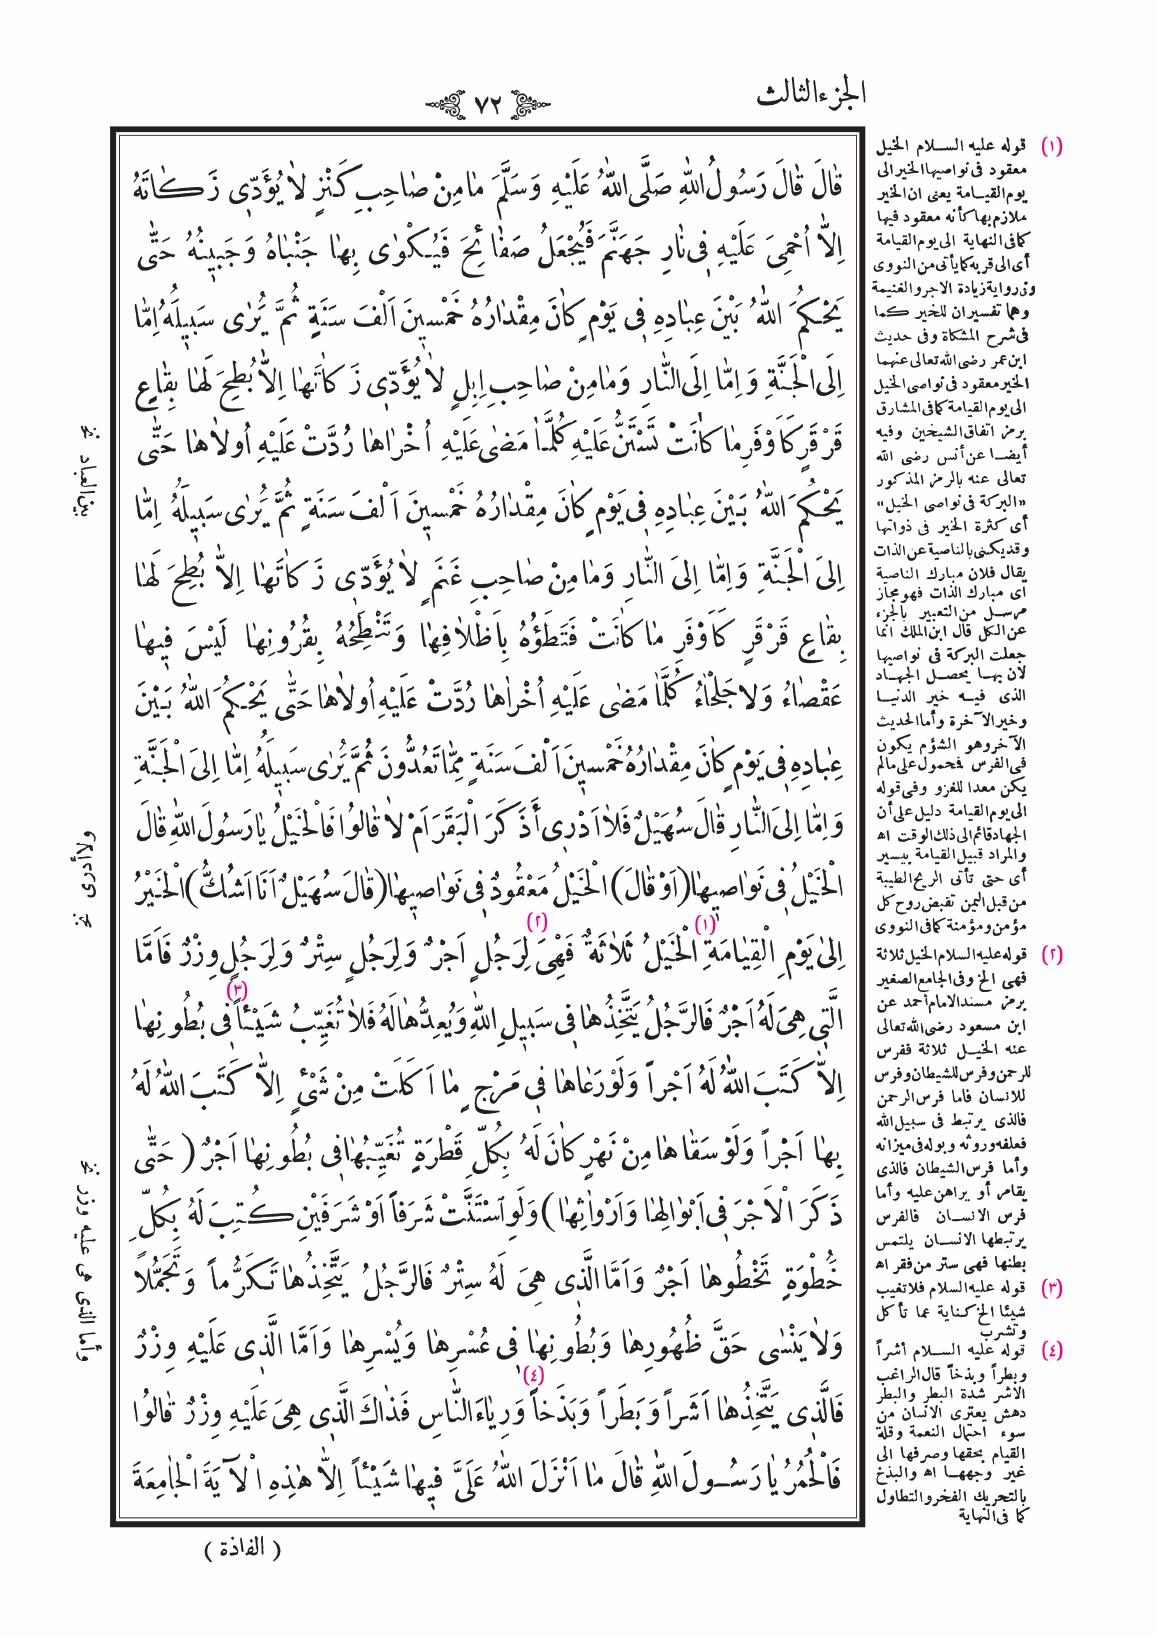 الجزء الثالث
٧٢
قَالَ قَالَ رَسُولُ اللّٰهِ صَلَّى اللّٰهُ عَلَيْهِ وَسَلَّمَ مَا مِنْ صَاحِبِ كَنْزٍ لَا يُؤَدّ۪ى زَكَاتَهُ
اِلَّا اُحْمِىَ عَلَيْهِ ف۪ى نَارِ جَهَنَّمَ فَيُجْعَلُ صَفَائِحَ فَيُكْوٰى بِهَا جَنْبَاهُ وَجَب۪ينُهُ حَتّٰى
يَحْكُمَ اللّٰهُ بَيْنَ عِبَادِه۪ ف۪ى يَوْمٍ كَانَ مِقْدَارُهُ خَمْس۪ينَ اَلْفَ سَنَةٍ ثُمَّ يُرٰى سَب۪يلَهُ اِمَّا
اِلَى الْجَنَّةِ وَاِمَّا اِلَى النَّارِ وَمَا مِنْ صَاحِبِ اِبِلٍ لَا يُؤَدّ۪ى زَكَاتَهَا اِلَّا بُطِحَ لَهَا بِقَاعٍ
قَرْقَرٍ كَاَوْفَرِ مَا كَانَتْ تَسْتَنُّ عَلَيْهِ كُلَّمَا مَضٰى عَلَيْهِ اُخْرَاهَا رُدَّتْ عَلَيْهِ اُولَاهَا حَتّٰى
يَحْكُمَ اللّٰهُ بَيْنَ عِبَادِه۪ ف۪ى يَوْمٍ كَانَ مِقْدَارُهُ خَمْس۪ينَ اَلْفَ سَنَةٍ ثُمَّ يُرٰى سَب۪يلَهُ اِمَّا
اِلَى الْجَنَّةِ وَاِمَّا اِلَى النَّارِ وَمَا مِنْ صَاحِبِ غَنَمٍ لَا يُؤَدّ۪ى زَكَاتَهَا اِلَّا بُطِحَ لَهَا
بِقَاعٍ قَرْقَرٍ كَاَوْفَرِ مَا كَانَتْ فَتَطَؤُهُ بِاَظْلَافِهَا وَتَنْطِحُهُ بِقُرُونِهَا لَيْسَ ف۪يهَا
عَقْصَاءُ وَلَا جَلْحَاءُ كُلَّمَا مَضٰى عَلَيْهِ اُخْرَاهَا رُدَّتْ عَلَيْهِ اُولَاهَا حَتّٰى يَحْكُمَ اللّٰهُ بَيْنَ
عِبَادِه۪ ف۪ى يَوْمٍ كَانَ مِقْدَارُهُ خَمْس۪ينَ اَلْفَ سَنَةٍ مِمَّا تَعُدُّونَ ثُمَّ يُرٰى سَب۪يلَهُ اِمَّا اِلَى الْجَنَّةِ
وَاِمَّا اِلَى النَّارِ قَالَ سُهَيْلٌ فَلَا اَدْر۪ى أَذَكَرَ الْبَقَرَ اَمْ لَا قَالُوا فَالْخَيْلُ يَا رَسُولَ اللّٰهِ قَالَ
الْخَيْلُ ف۪ى نَوَاص۪يهَا (اَوْ قَالَ) الْخَيْلُ مَعْقُودٌ ف۪ى نَوَاص۪يهَا (قَالَ سُهَيْلٌ اَنَا اَشُكُّ) الْخَيْرُ
اِلٰى يَوْمِ الْقِيَامَةِ (١) الْخَيْلُ ثَلَاثَةٌ (٢) فَهِىَ لِرَجُلٍ اَجْرٌ وَلِرَجُلٍ سِتْرٌ وَلِرَجُلٍ وِزْرٌ فَاَمَّا
الَّت۪ى هِىَ لَهُ اَجْرٌ فَالرَّجُلُ يَتَّخِذُهَا ف۪ى سَب۪يلِ اللّٰهِ وَيُعِدُّهَا لَهُ فَلَا تُغَيِّبُ شَيْئاً (٣) ف۪ى بُطُونِهَا
اِلَّا كَتَبَ اللّٰهُ لَهُ اَجْراً وَلَوْ رَعَاهَا ف۪ى مَرْجٍ مَا اَكَلَتْ مِنْ شَىْءٍ اِلَّا كَتَبَ اللّٰهُ لَهُ
بِهَا اَجْراً وَلَوْ سَقَاهَا مِنْ نَهْرٍ كَانَ لَهُ بِكُلِّ قَطْرَةٍ تُغَيِّبُهَا ف۪ى بُطُونِهَا اَجْرٌ (حَتّٰى
ذَكَرَ الْاَجْرَ ف۪ى اَبْوَالِهَا وَاَرْوَاثِهَا) وَلَوِ اسْتَنَّتْ شَرَفاً اَوْ شَرَفَيْنِ كُتِبَ لَهُ بِكُلِّ
خُطْوَةٍ تَخْطُوهَا اَجْرٌ وَاَمَّا الَّذ۪ى هِىَ لَهُ سِتْرٌ فَالرَّجُلُ يَتَّخِذُهَا تَكَرُّماً وَتَجَمُّلاً
وَلَا يَنْسٰى حَقَّ ظُهُورِهَا وَبُطُونِهَا ف۪ى عُسْرِهَا وَيُسْرِهَا وَاَمَّا الَّذ۪ى عَلَيْهِ وِزْرٌ
فَالَّذ۪ى يَتَّخِذُهَا اَشَراً (٤) وَبَطَراً وَبَذَخاً وَرِيَاءَ النَّاسِ فَذَاكَ الَّذ۪ى هِىَ عَلَيْهِ وِزْرٌ قَالُوا
فَالْحُمُرُ يَا رَسُولَ اللّٰهِ قَالَ مَا اَنْزَلَ اللّٰهُ عَلَىَّ ف۪يهَا شَيْئاً اِلَّا هٰذِهِ الْآيَةَ الْجَامِعَةَ
(١) قوله عليه السلام الخيل
معقود فى نواصيها الخير الى
يوم القيامة يعنى ان الخير
ملازم بها كأنه معقود فيها
كما فى النهاية الى يوم القيامة
أى الى قربه كما يأتى من النووى
وفى رواية زيادة الاجر والغنيمة
وهما تفسيران للخير كما
فى شرح المشكاة وفى حديث
ابن عمر رضى الله تعالى عنهما
الخير معقود فى نواصى الخيل
الى يوم القيامة كما فى المشارق
برمز اتفاق الشيخين وفيه
أيضا عن أنس رضى الله
تعالى عنه بالرمز المذكور
«البركة فى نواصى الخيل»
أى كثرة الخير فى ذواتها
وقد يكنى بالناصية عن الذات
يقال فلان مبارك الناصية
اى مبارك الذات فهو مجاز
مرسل من التعبير بالجزء
عن الكل قال ابن الملك انما
جعلت البركة فى نواصيها
لان بها يحصل الجهاد
الذى فيه خير الدنيا
وخير الآخرة وأما الحديث
الآخر وهو الشؤم يكون
فى الفرس فمحمول على مالم
يكن معدا للغزو وفى قوله
الى يوم القيامة دليل على أن
الجهاد قائم الى ذلك الوقت اه
والمراد قبيل القيامة بيسير
أى حتى تأتى الريح الطيبة
من قبل اليمن تقبض روح كل
مؤمن ومؤمنة كما فى النووى
(٢) قوله عليه السلام الخيل ثلاثة
فهى الخ وفى الجامع الصغير
برمز مسند الامام أحمد عن
ابن مسعود رضى الله تعالى
عنه الخيل ثلاثة ففرس
للرحمن وفرس للشيطان وفرس
للانسان فاما فرس الرحمن
فالذى يرتبط فى سبيل الله
فعلفه وروثه وبوله فى ميزانه
وأما فرس الشيطان فالذى
يقامر أو يراهن عليه وأما
فرس الانسان فالفرس
يرتبطها الانسان يلتمس
بطنها فهى ستر من فقر اه
(٣) قوله عليه السلام فلا تغيب
شيئا الخ كناية عما تأكل
وتشرب
(٤) قوله عليه السلام أشراً
وبطراً وبذخاً قال الراغب
الاشر شدة البطر والبطر
دهش يعترى الانسان من
سوء احتمال النعمة وقلة
القيام بحقها وصرفها الى
غير وجهها اه والبذخ
بالتحريك الفخر والتطاول
كما فى النهاية
بين العباد نخ
ولا أدرى نخ
وأما الذى هى عليه وزر نخ
( الفاذة )